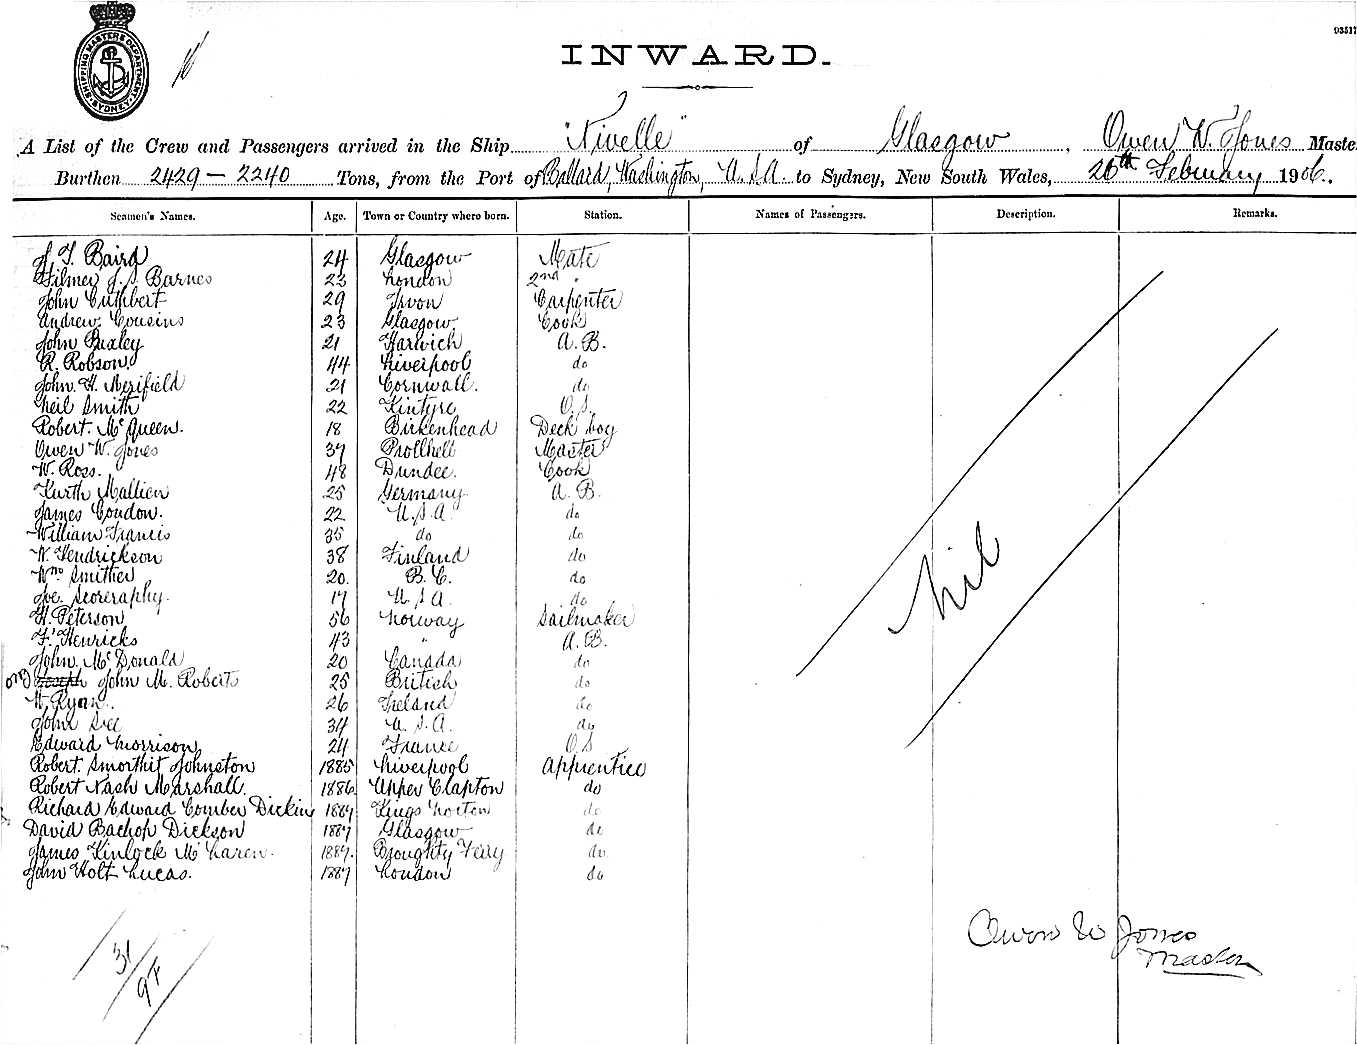 SHIPPING MASTERS DEPARTMENT SYDNEY
16
93517
INWARD.
A List of the Crew and Passengers arrived in the Ship "Nivelle" of Glasgow, Owen W. Jones Maste
Burthen 2429 - 2240 Tons, from the Port of Ballard, Washington, U.S.A. to Sydney, New South Wales, 26th February 1906.
Seamen's Names. Age. Town or Country where born. Station. Names of Passengers. Description. Remarks.
J. T. Baird 24 Glasgow Mate
Filmer J. S. Barnes 23 London 2nd "
John Cuthbert 29 Irvon Carpenter
Andrew Cousins 23 Glasgow Cook
John Buxley 21 Harwich A. B.
R. Robson 44 Liverpool do
John. H. Merifield 21 Cornwall. do
Neil Smith 22 Kintyre O.S.
Robert. McQueen. 18 Birkenhead Deck boy
Owen W. Jones 37 Prollheli Master
W. Ross. 48 Dundee. Cook
Kurth Mallien 25 Germany A. B.
James Condon. 22 U.S.A. do
William Francis 35 do do
W. Hendrickson 38 Finland do
Wm Smither 20. B. C. do
Joe. 17 U.S.A. do
H. Peterson 56 Norway Sailmaker
F. Henricks 43 " A. B.
John. McDonald 20 Canada do
Joseph John M. Roberts 25 British do
W. Ryan. 26 Ireland do
John Lee 34 U.S.A. do
Edward Morrison 24 France O.S
Robert. Smorthit Johnston 1885 Liverpool Apprentice
Robert Nash Marshall. 1886 Upper Clapton do
Richard Edward Comber Dickin 1887 Kings Norton do
David Bachop Dickson 1887 Glasgow do
James Kinlock McLaren. 1887. Broughty Ferry do
John Holt Lucas. 1887 London do
Nil
Owen W Jones
Master
31